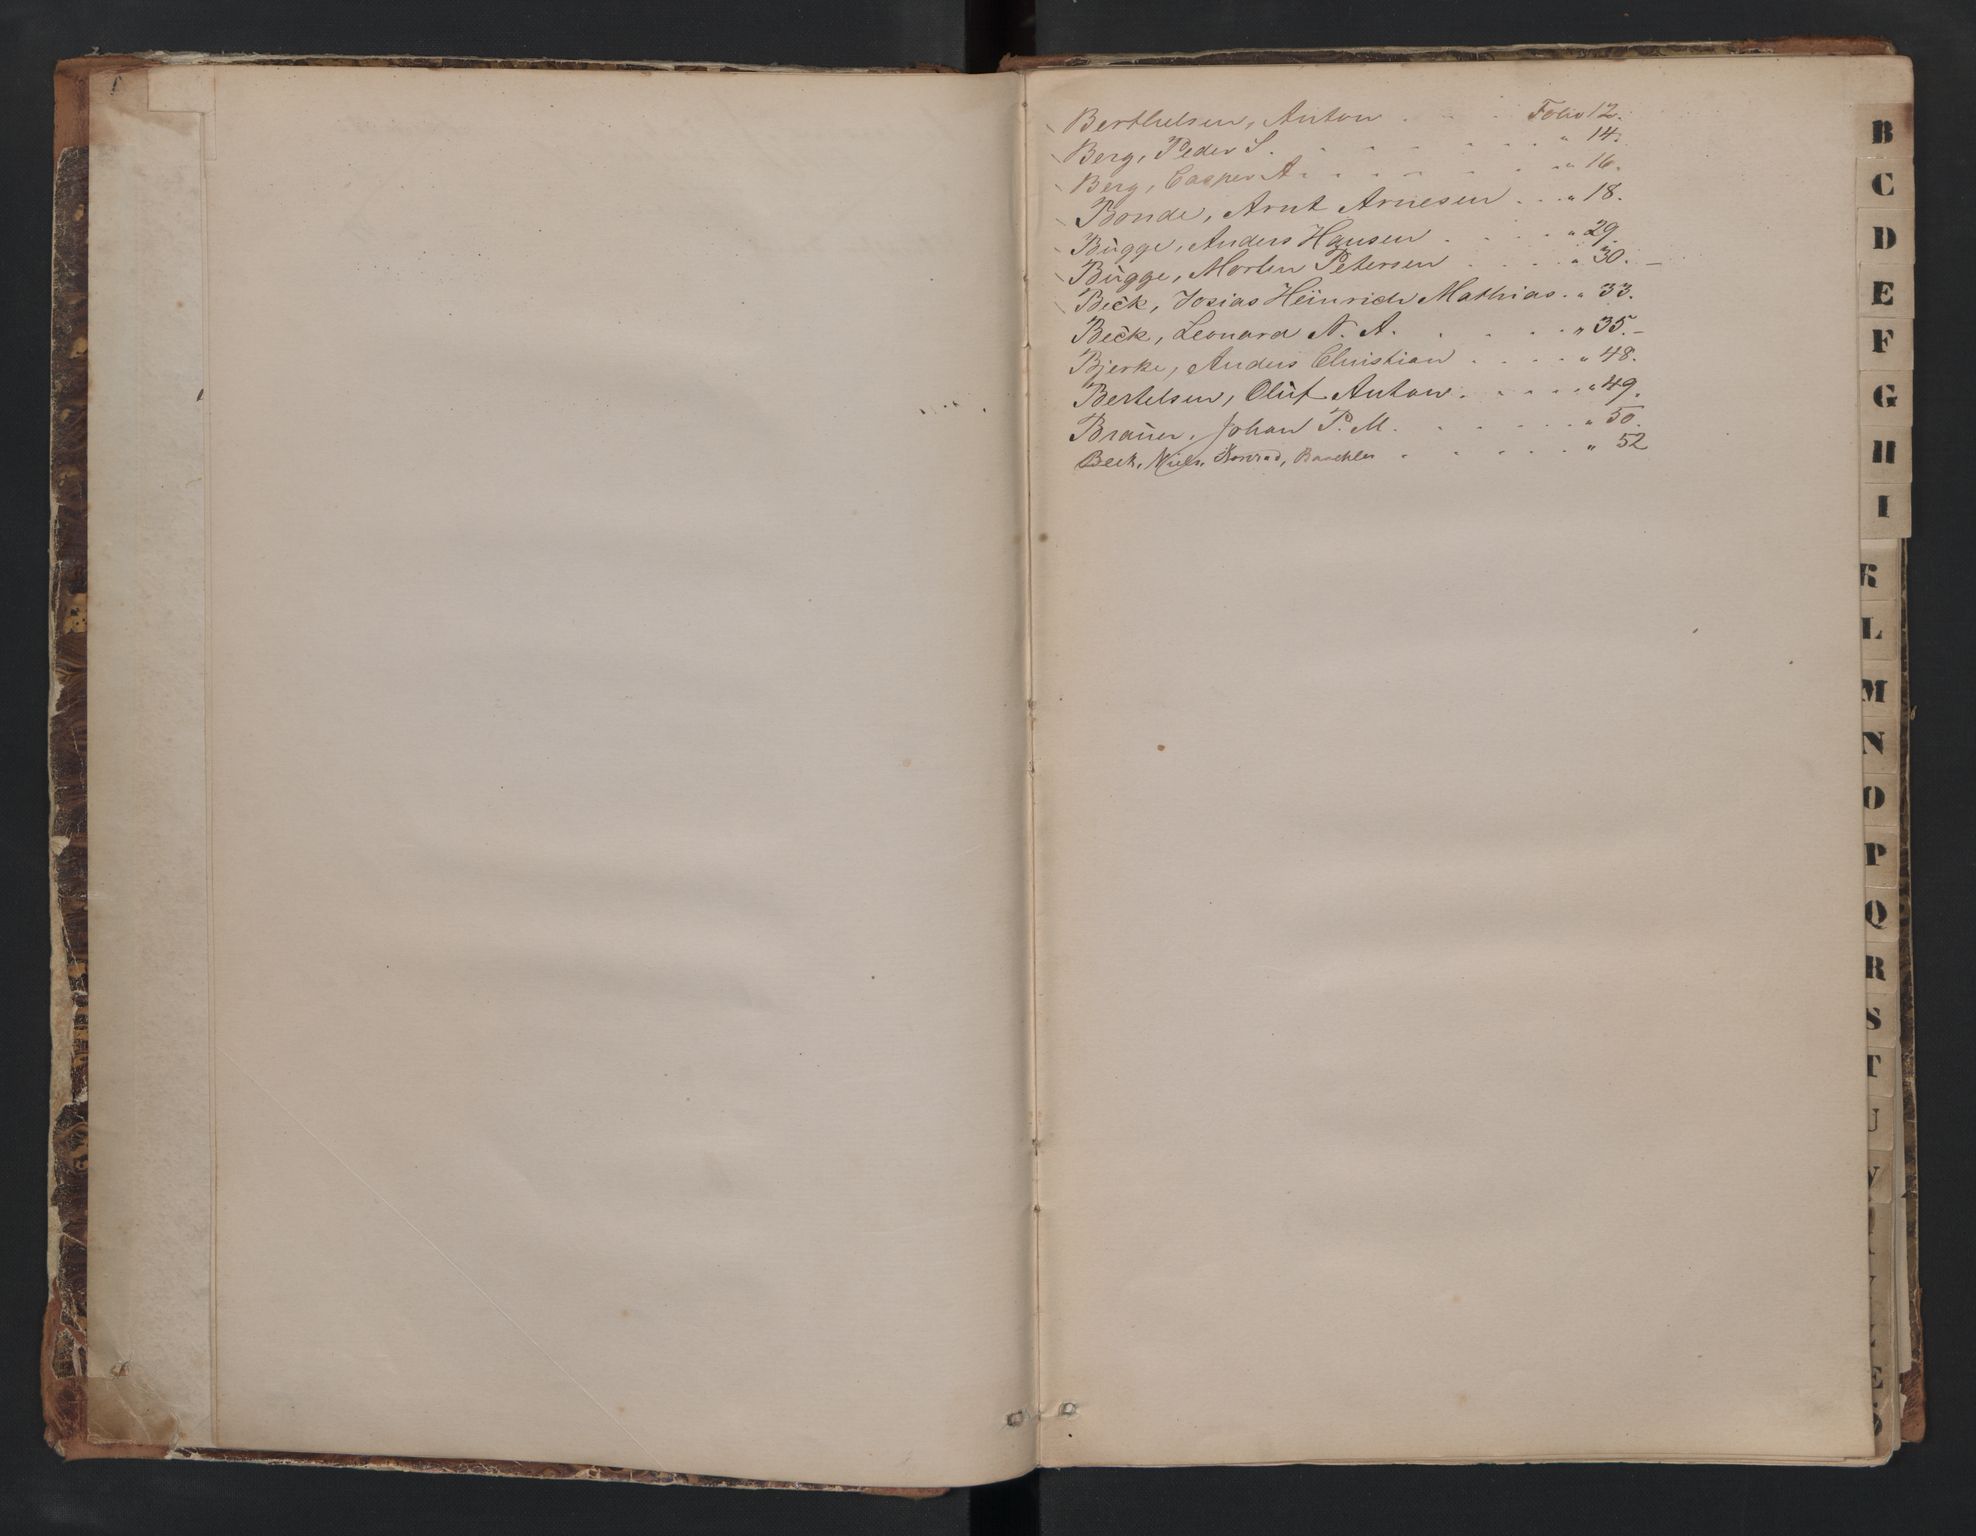 Berthelsen, Anton . . . Folio 12.
Berg, Peder S. . . . . . . . " 14.
Berg, Casper A. . . . . . . . " 16.
Bonde, Arnt Arnesen . . . " 18.
Bugge, Anders Hansen . . . . " 29.
Bugge, Morten Petersen . . . . " 30. –
Beck, Josias Heinrich Mathias . " 33.
Beck, Leonard N. A. . . . . . " 35. –
Bjerke, Anders Christian . . . . " 48.
Bertelsen, Oluf Anton . . . . . " 49.
Brauer, Johan P. M. . . . . . . " 50.
Beck, Niels Konrad, . . . . . " 52
B
C
D
E
F
G
H
I
K
L
M
N
O
P
Q
R
S
T
U
V
Y
Z
Æ
Ø